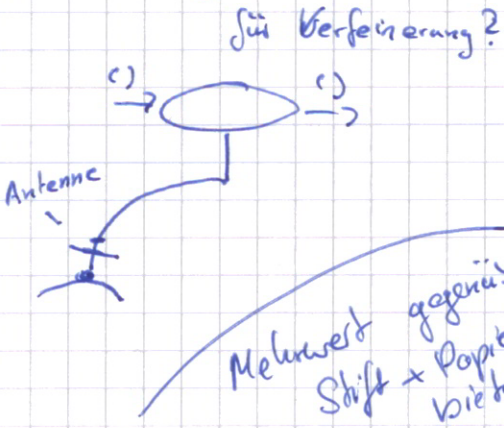 für Verfeinerung?
() ()
Antenne
Mehrwert gegenü
Stift + Papie
biet